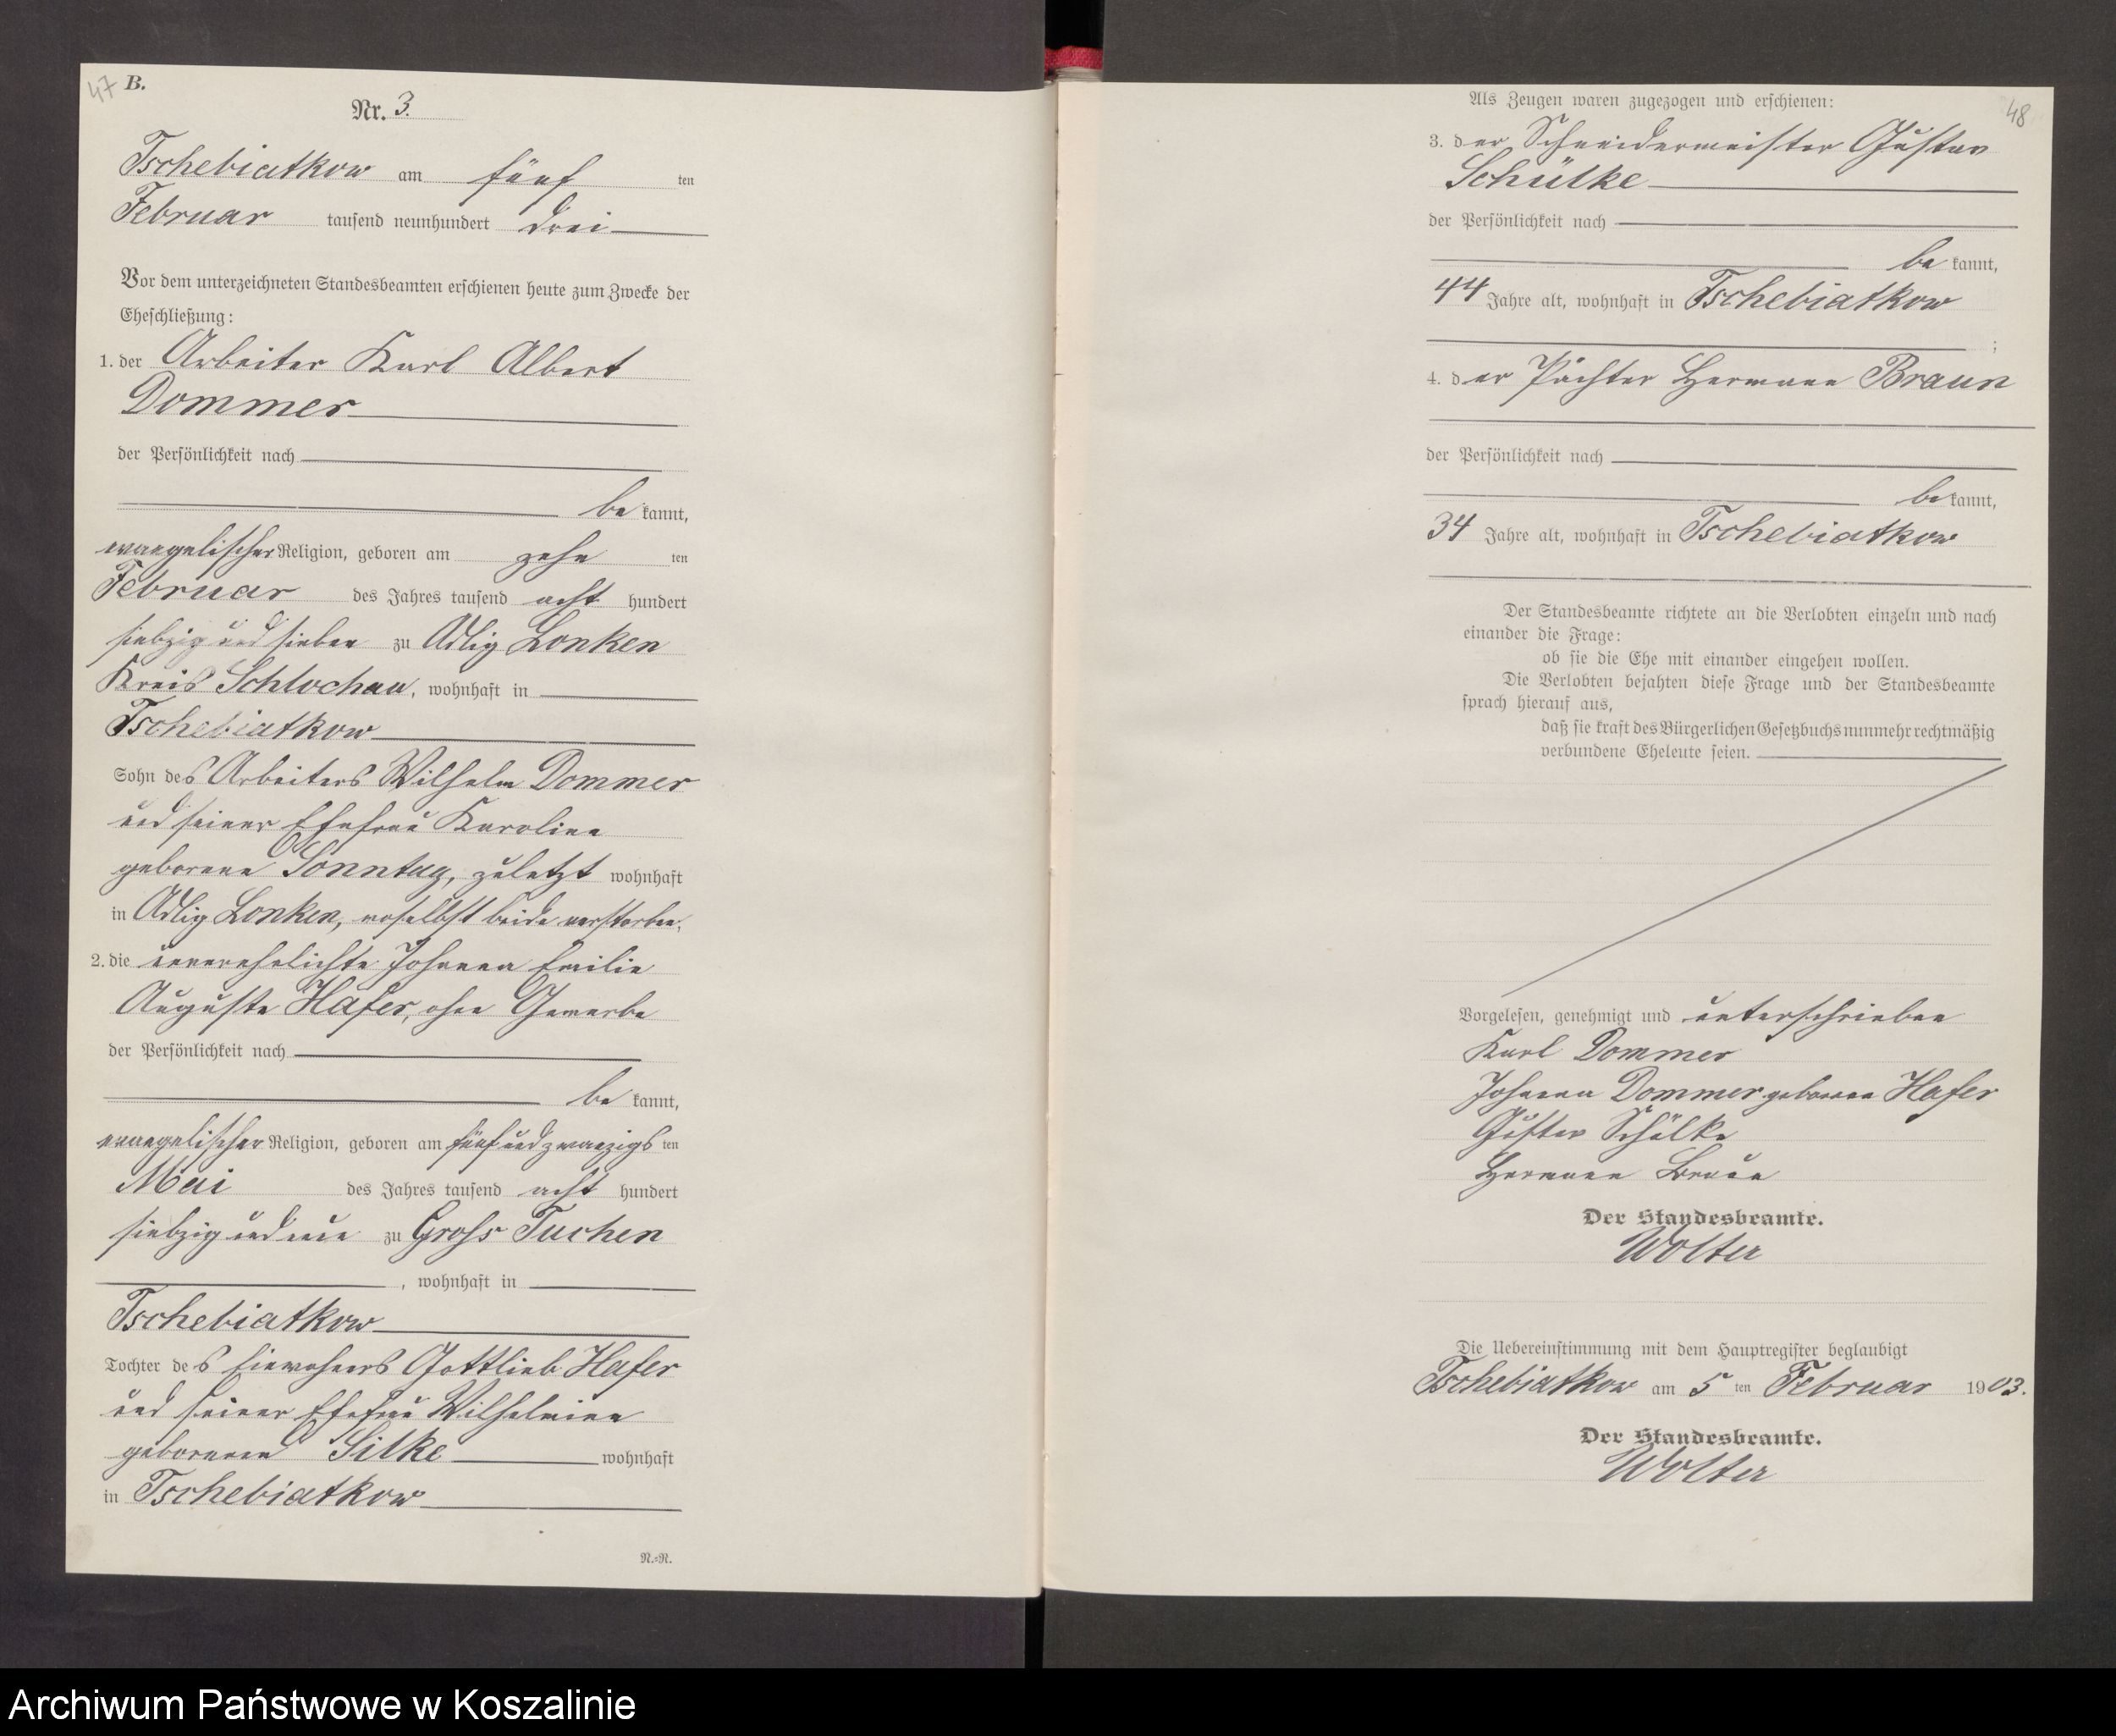 47
B.
Nr. 3.
Tschebiatkow am fünf ten
Februar tausend neunhundert drei
Vor dem unterzeichneten Standesbeamten erschienen heute zum Zwecke der
Eheschließung:
1. der Arbeiter Karl Albert
Dommer
der Persönlichkeit nach
be kannt,
evangelischer Religion, geboren am zehn ten
Februar des Jahres tausend acht hundert
siebzig und sieben zu Adlig Lonken
Kreis Schlochau, wohnhaft in
Tschebiatkow
Sohn des Arbeiters Wilhelm Dommer
und seiner Ehefrau Karoline
geborene Sonntag, zuletzt wohnhaft
in Adlig Lonken, woselbst beide verstorben;
2. die unverehelichte Johanna Emilie
Auguste Hafer, ohne Gewerbe
der Persönlichkeit nach
be kannt,
evangelischer Religion, geboren am fünf und zwanzigs ten
Mai des Jahres tausend acht hundert
siebzig und neun zu Gross Tuchen
, wohnhaft in
Tschebiatkow
Tochter des Einwohners Gottlieb Hafer
und seiner Ehefrau Wilhelmine
geborenen Silke wohnhaft
in Tschebiatkow
N.=N.
48
Als Zeugen waren zugezogen und erschienen:
3. der Schneidermeister Gustav
Schülke
der Persönlichkeit nach
be kannt,
44 Jahre alt, wohnhaft in Tschebiatkow
;
4. der Pächter Hermann Braun
der Persönlichkeit nach
be kannt,
34 Jahre alt, wohnhaft in Tschebiatkow
Der Standesbeamte richtete an die Verlobten einzeln und nach
einander die Frage:
ob sie die Ehe mit einander eingehen wollen.
Die Verlobten bejahten diese Frage und der Standesbeamte
sprach hierauf aus,
daß sie kraft des Bürgerlichen Gesetzbuchs nunmehr rechtmäßig
verbundene Eheleute seien.
Vorgelesen, genehmigt und unterschrieben
Karl Dommer
Johanna Dommer geborene Hafer
Gustav Schülke
Hermann Braun
Der Standesbeamte.
Wolter
Die Uebereinstimmung mit dem Hauptregister beglaubigt
Tschebiatkow am 5 ten Februar 1903.
Der Standesbeamte.
Wolter
Archiwum Państwowe w Koszalinie